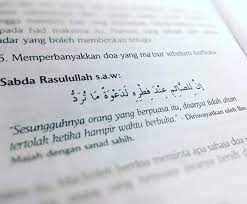 pada had makasima itu,
adar yang boleh memberikan
5. Memperbanyakkan doa yang ma'tsur sebelum berbuka
Sabda Rasulullah s.a.w:
إِنَّ لِلصَّائِمِ عِنْدَ فِطْرِهِ لَدَعْوَةً مَا تُرَدُّ
"Sesungguhnya orang yang berpuasa itu, doanya tidak akan
tertolak ketika hampir waktu berbuka." - Diriwayatkan oleh Ibn
Majah dengan sanad sahih.
meminta apa sahaja doa